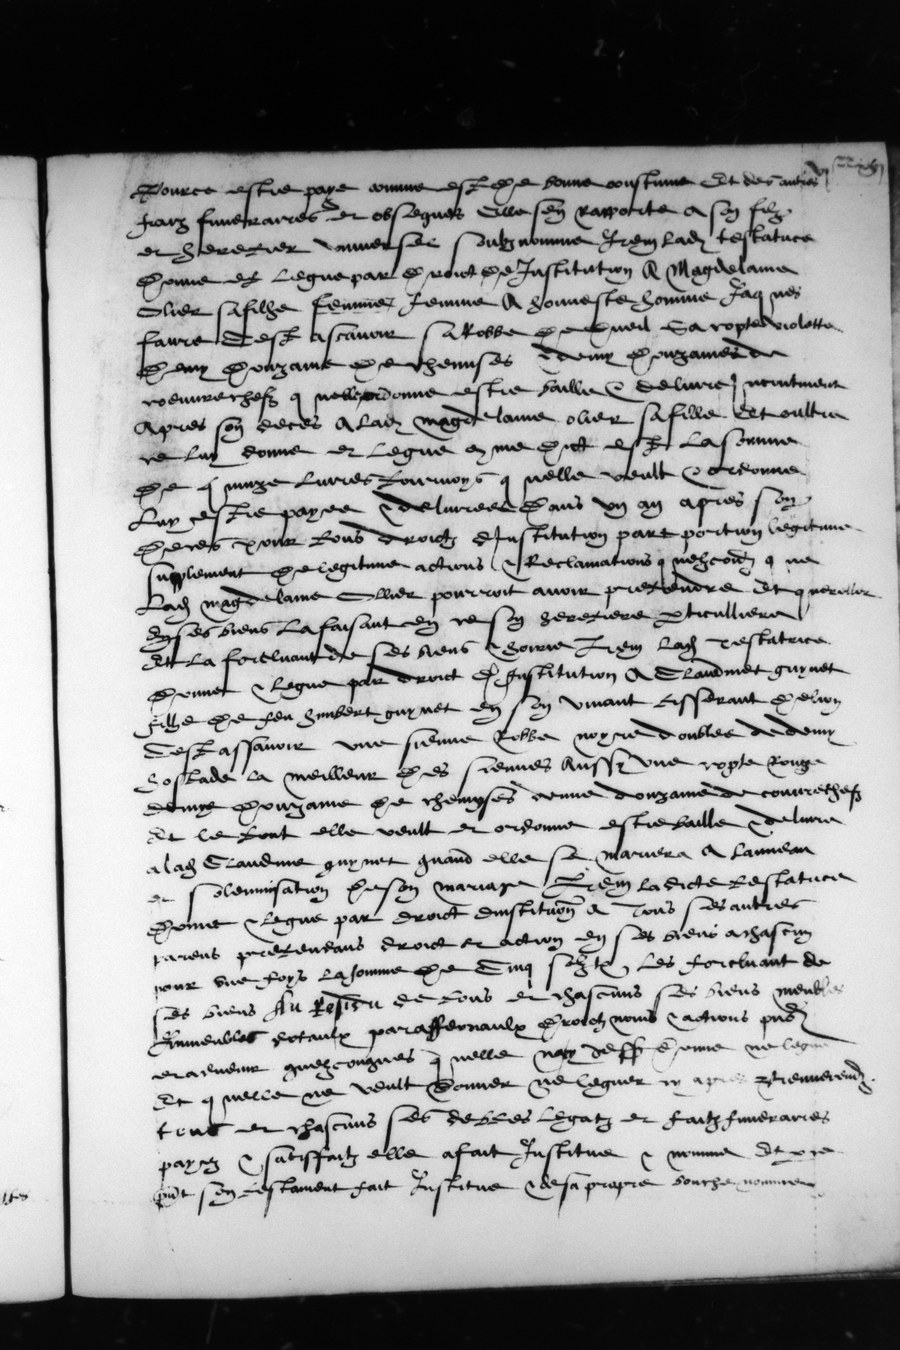 Pource estre paye comme est de bonne coustume Et des autres
fraiz funerarres et obseques Elle sen rapporte a son filz
et heretier universel soubz nomme Item ladz testatrice
Donne et legue par droict de Institution A Magdelaine
Olier sa filhe femme A honneste homme Jaques
faure Cest ascavoir sa Robbe de dueil Sa cotte violette
Demy douzaine de chemises demy douzaine de
couvrechefz quelle ordonne estre baille & delivre
Apres son deces A ladz magdelaine olier sa fille Et oultre
ce luy donne et legue la somme
de quinze livres tournoys quelle veult & ordonne
luy estre payee & delivree Dans un an apres son
deces Pour tous droictz dInstitution part portion legitime
supplement de legitime actions & Reclamations que
ladz magdelaine Ollier pourroit avoir pretendre Et quereller
En ses biens La faisant en ce son heretiere pticulliere
Et la forcluant de ses biens & hoirie Item ladz Testatrice
donne & legue par droict dInstitution A Claudine guynet
fille de feu humbert guynet En son vivant tisserant
Cest assavoir une sienne Robbe noyre doublee de demy
hostade la meilleur des siennes Aussy une cotte Rouge
demye douzaine de chemises demye douzaine de couvrechefz
Et le tout elle veult et ordonne estre baille & delivre
a ladz Claudine guynet quand elle se mariera A lanneau
et solemnisation de son mariage Item ladicte testatrice
donne & legue par droict dinstitution A Tous ses autres
parens pretendans droict et action En ses biens a chascun
pour une foys la somme de Cinq solz tz Les forcluant de
ses biens Au Residu de tous et chascuns ses biens meubles
Immeubles dotaulx paraffernaulx droictz noms & actions
et advenir quelzconques quelle
Et quelle ne veult donner ne leguer cy apres
tous et chascuns ses debtes legatz et fraitz funeraires
payez & satisfaitz elle a fait Institue & nomme Et
son testament fait Institue & de sa propre bouche nomme